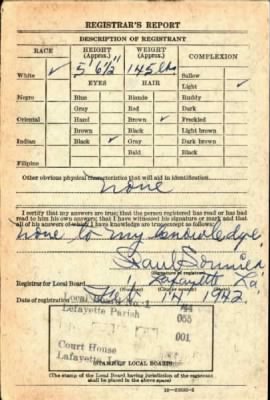 REGISTRAR'S REPORT
DESCRIPTION OF REGISTRANT
RACE HEIGHT (Approx.) WEIGHT (Approx.) COMPLEXION
5' 6½" 145 lbs
White ✓ Sallow
EYES HAIR Light ✓
Negro Blue Blonde Ruddy
Gray Red Dark
Oriental Hazel Brown ✓ Freckled
Brown Black Light brown
Indian Black ✓ Gray Dark brown
Bald Black
Filipino
Other obvious physical characteristics that will aid in identification
none
I certify that my answers are true; that the person registered has read or has had
read to him his own answers; that I have witnessed his signature or mark and that
all of his answers of which I have knowledge are true, except as follows:
none to my knowledge.
Paul
(Signature of registrar)
Registrar for Local Board Lafayette La.
(Number) (City or county) (State)
Date of registration Feb 14 1942.
Local Board No. 1
Lafayette Parish
055
001
Court House
Lafayette,
(STAMP OF LOCAL BOARD)
(The stamp of the Local Board having jurisdiction of the registrant
shall be placed in the above space)